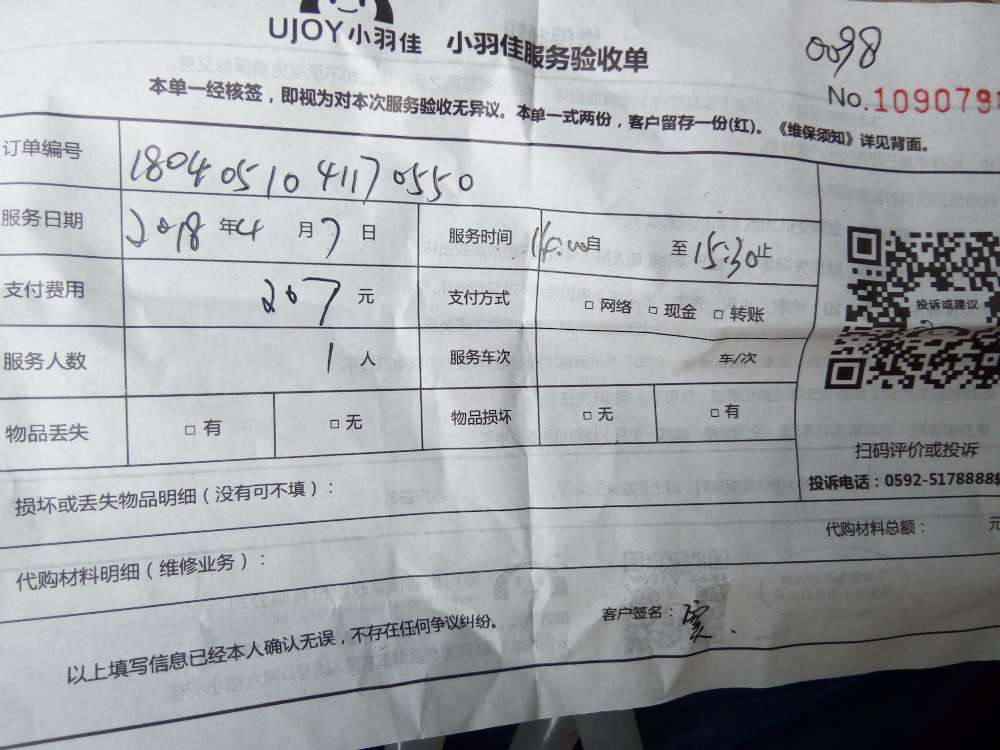 UJOY小羽佳 小羽佳服务验收单
0098
No.1090791
本单一经核签，即视为对本次服务验收无异议。本单一式两份，客户留存一份(红)。《维保须知》详见背面。
订单编号 1804051041170550
服务日期 2018年4月7日 服务时间 14:00自 至15:30止
支付费用 207元 支付方式 □ 网络 □ 现金 □ 转账
服务人数 1人 服务车次 车/次
物品丢失 □ 有 □ 无 物品损坏 □ 无 □ 有
投诉或建议
扫码评价或投诉
投诉电话：0592-5178888转
损坏或丢失物品明细（没有可不填）：
代购材料总额： 元
代购材料明细（维修业务）：
客户签名：
以上填写信息已经本人确认无误，不存在任何争议纠纷。